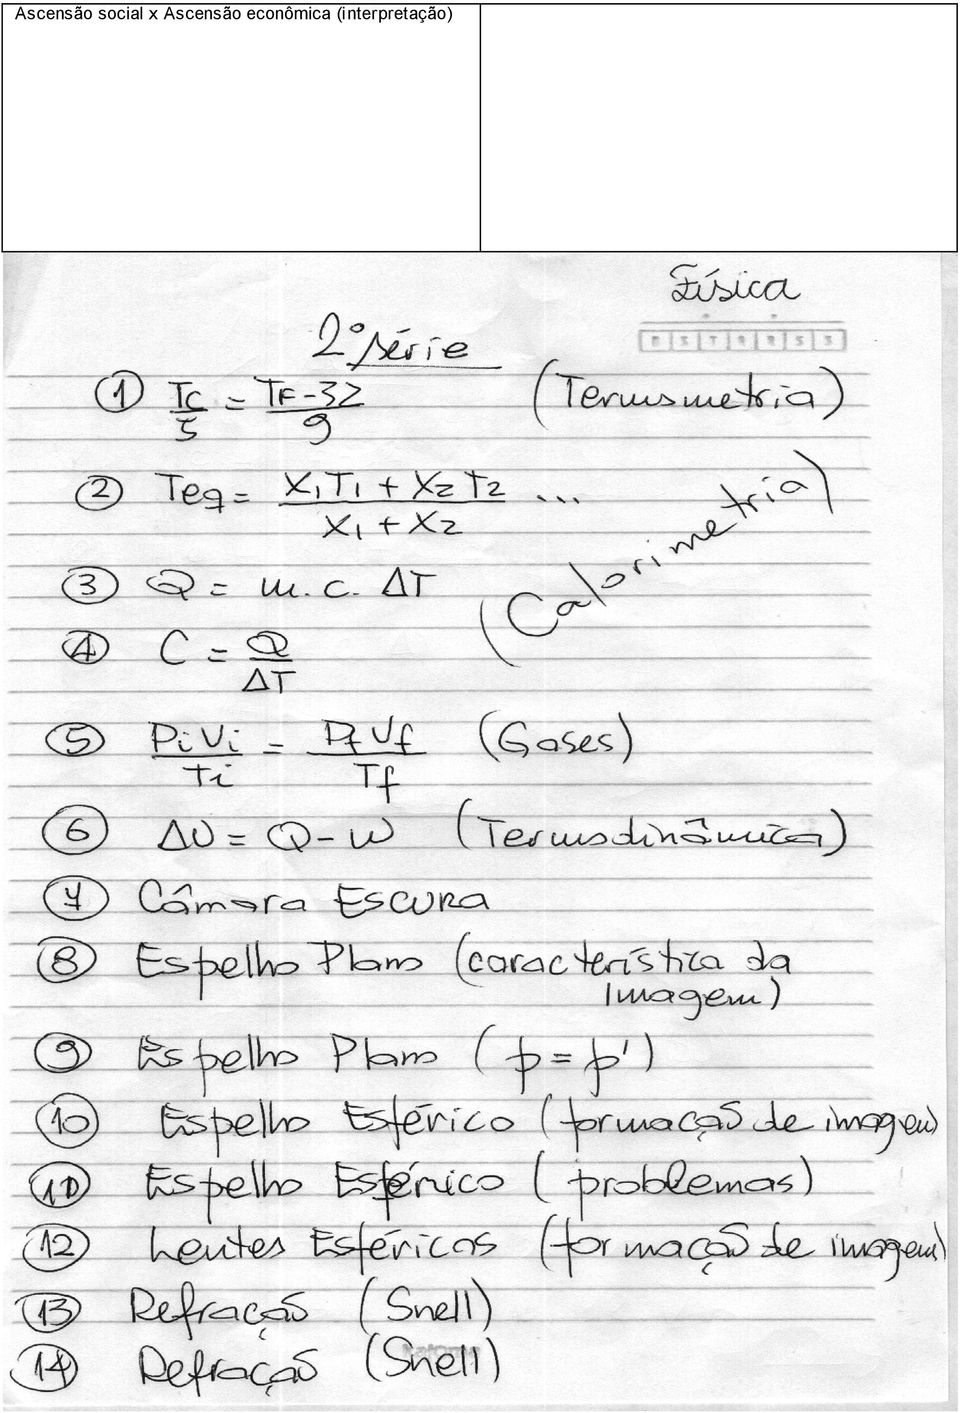 Ascensão social x Ascensão econômica (interpretação)
Física
2º série
① Tc/5 = TF-32/9 (Termometria)
② Teq = X₁T₁ + X₂T₂ / X₁ + X₂ ...
(Calorimetria)
③ Q = m.c. ΔT
④ C = Q/ΔT
⑤ PiVi/Ti = PfVf/Tf (Gases)
⑥ ΔU = Q - W (Termodinâmica)
⑦ Câmara Escura
⑧ Espelho Plano (característica da
imagem)
⑨ Espelho Plano (p = p')
⑩ Espelho Esférico (formação de imagem)
⑪ Espelho Esférico (problemas)
⑫ Lentes Esféricas (formação de imagem)
⑬ Refração (Snell)
⑭ Refração (Snell)